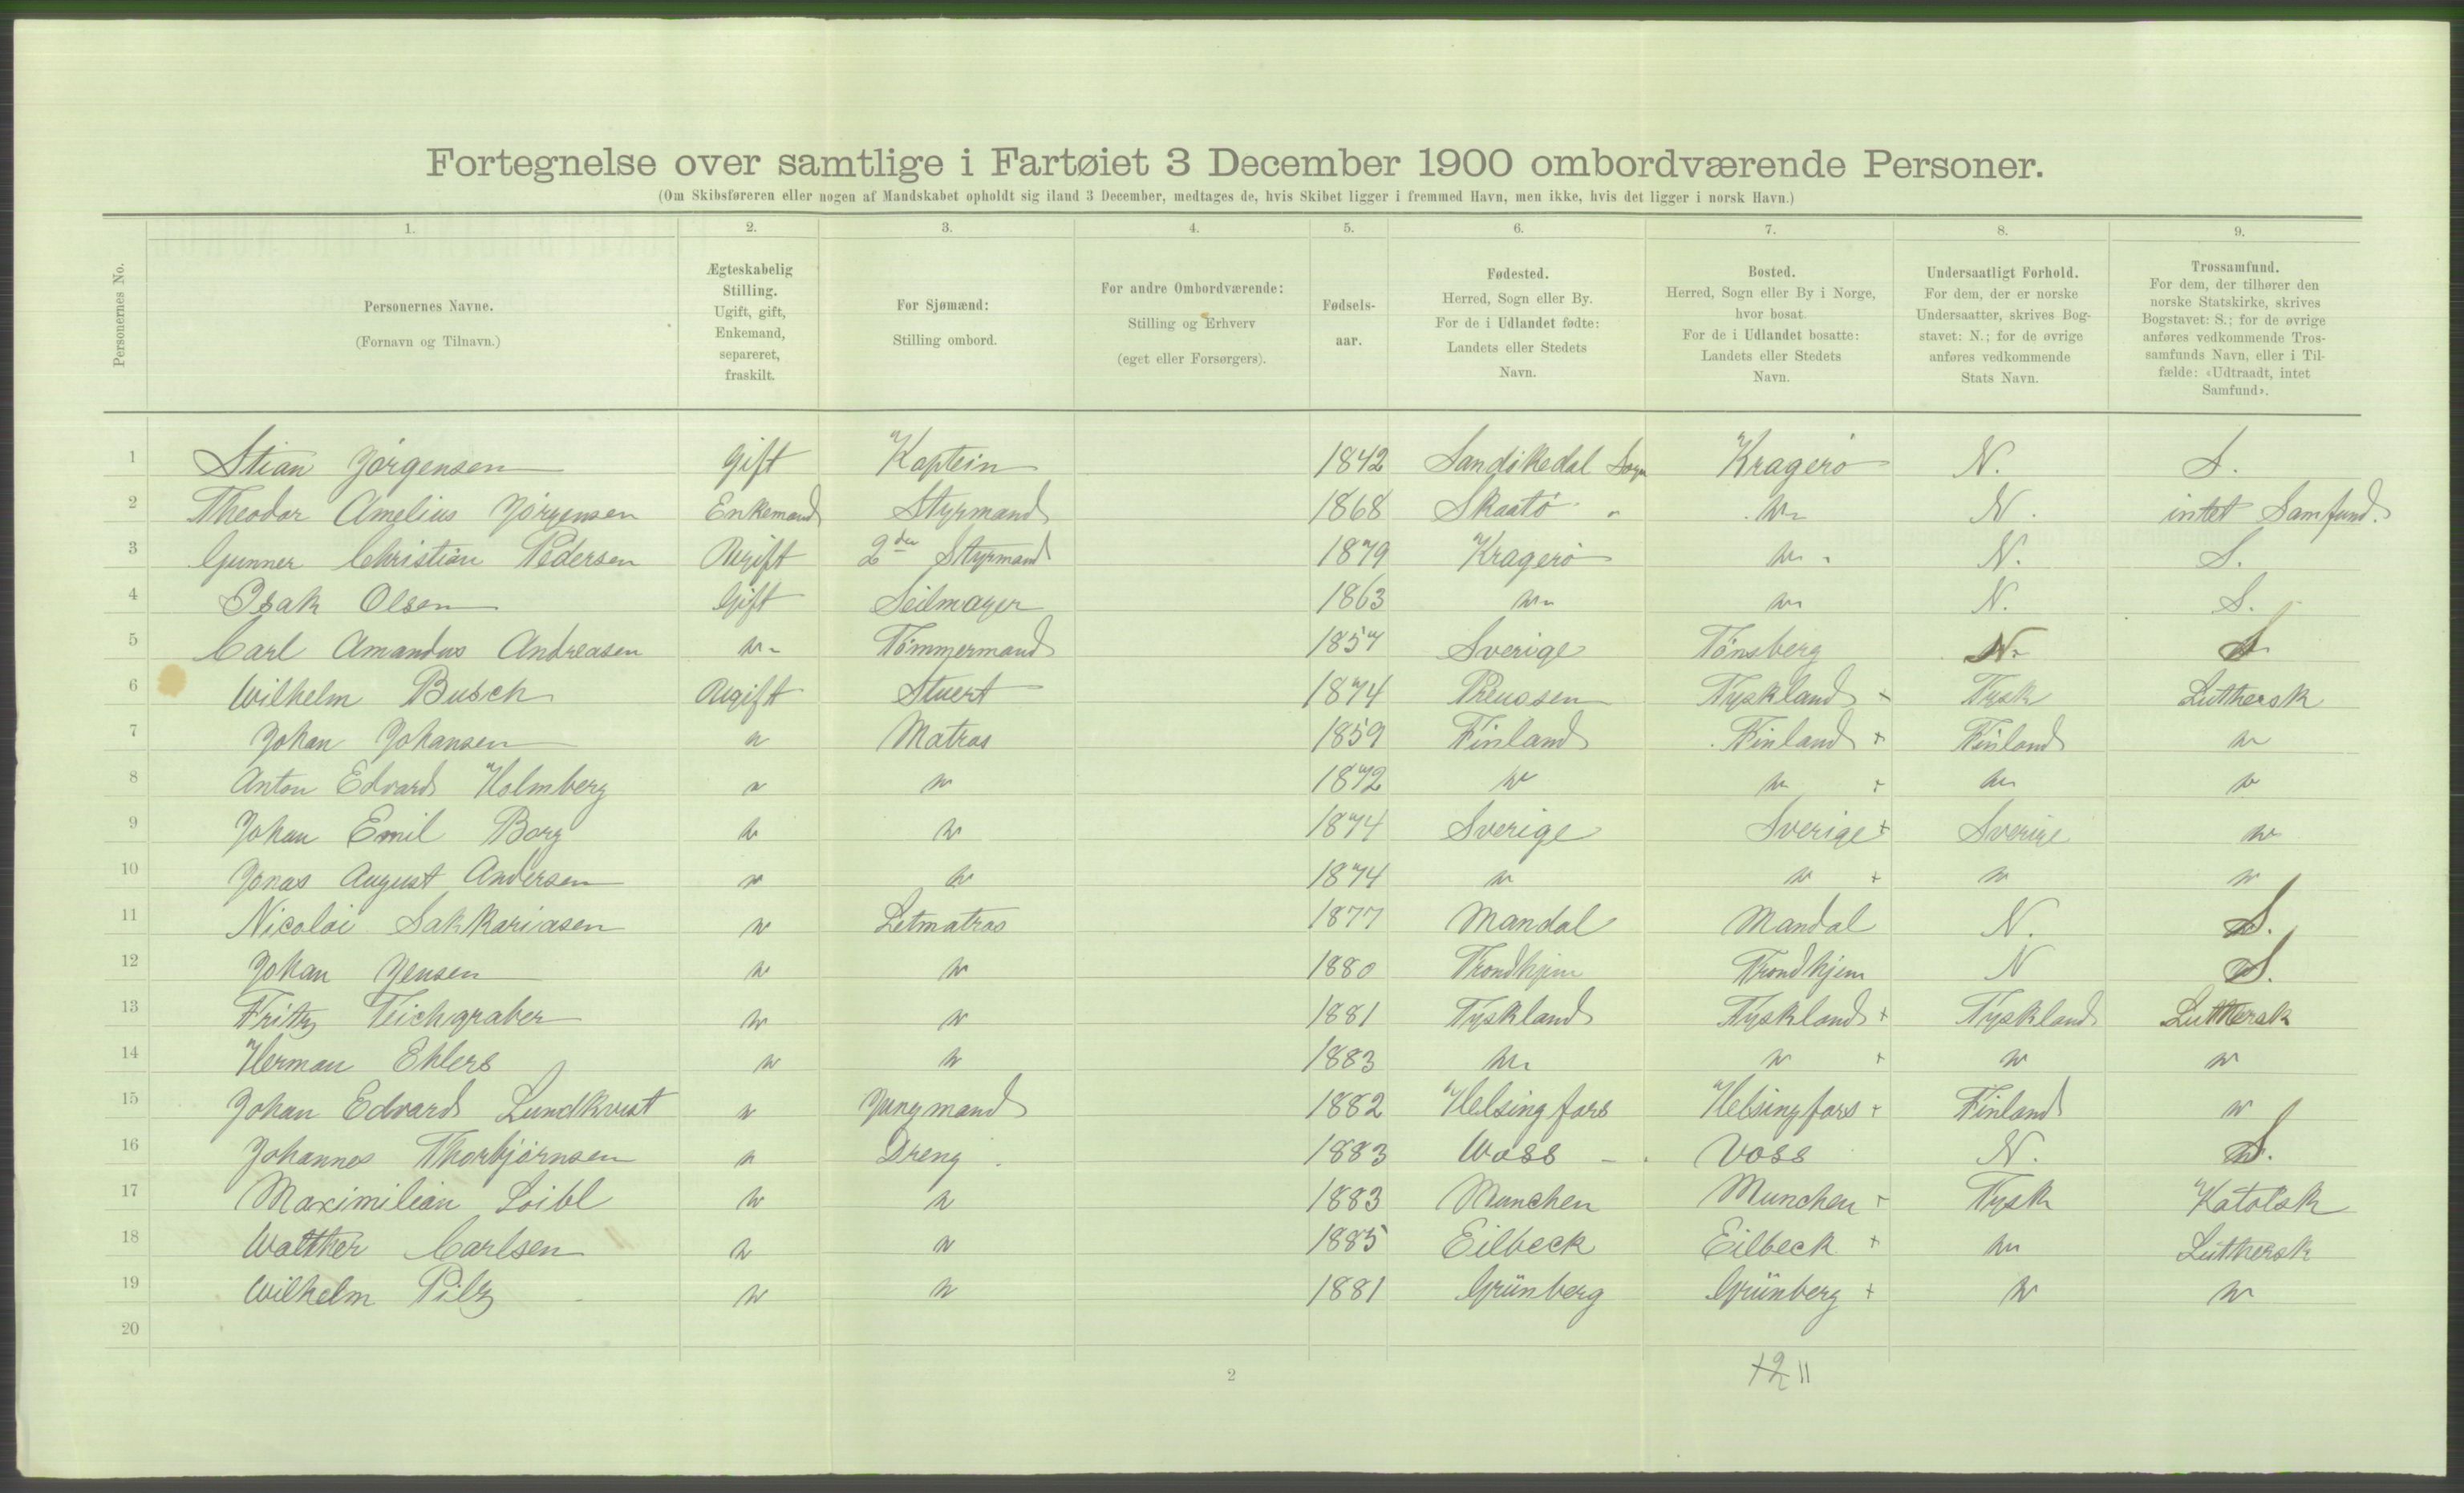 Fortegnelse over samtlige i Fartøiet 3 December 1900 ombordværende Personer.
(Om Skibsføreren eller nogen af Mandskabet opholdt sig iland 3 December, medtages de, hvis Skibet ligger i fremmed Havn, men ikke, hvis det ligger i norsk Havn.)
Personernes No.
1. 2. 3. 4. 5. 6. 7. 8. 9.
Personernes Navne.
(Fornavn og Tilnavn.)
Ægteskabelig
Stilling.
Ugift, gift,
Enkemand,
separeret,
fraskilt.
For Sjømænd:
Stilling ombord.
For andre Ombordværende:
Stilling og Erhverv
(eget eller Forsørgers).
Fødsels-
aar.
Fødested.
Herred, Sogn eller By.
For de i Udlandet fødte:
Landets eller Stedets
Navn.
Bosted.
Herred, Sogn eller By i Norge,
hvor bosat.
For de i Udlandet bosatte:
Landets eller Stedets
Navn.
Undersaatligt Forhold.
For dem, der er norske
Undersaatter, skrives Bog-
stavet: N.; for de øvrige
anføres vedkommende
Stats Navn.
Trossamfund.
For dem, der tilhører den
norske Statskirke, skrives
Bogstavet: S.; for de øvrige
anføres vedkommende Tros-
samfunds Navn, eller i Til-
fælde: «Udtraadt, intet
Samfund».
1 Stian Jørgensen Gift Kaptein 1842 Sandökedal Sogn Kragerø N. S.
2 Theodor Amelius Jørgensen Enkemand Styrmand 1868 Skaatø " " N. intet Samfund.
3 Gunner Christian Pedersen Ugift 2den Styrmand 1879 Kragerø " N. S.
4 Isak Olsen Gift Seilmager 1863 " " N. S.
5 Carl Amandus Andreasen " Tömmermand 1857 Sverige Tönsberg N. S
6 Wilhelm Busch Ugift Stuert 1874 Preussen Tyskland + Tysk Luthersk
7 Johan Johansen " Matros 1859 Finland Finland + Finland "
8 Anton Edvard Holmberg " " 1872 " " + " "
9 Johan Emil Borg " " 1874 Sverige Sverige + Sverige "
10 Jonas August Andersen " " 1874 " " + " "
11 Nicolai Sakkariasen " Letmatros 1877 Mandal Mandal N. S.
12 Johan Jensen " " 1880 Trondhjem Trondhjem N S.
13 Fritz Teichgraber " " 1881 Tyskland Tyskland + Tyskland Luthersk
14 Herman Ehlers " " 1883 " " + " "
15 Johan Edvard Lundkvist " Jungmand 1882 Helsingfors Helsingfors + Finland "
16 Johannes Thorbjørnsen " Dreng 1883 Woss Voss N. S.
17 Maximilian Loibl " " 1883 Munchen Munchen + Tysk Katolsk
18 Walther Carlsen " " 1885 Eilbeck Eilbeck + " Luthersk
19 Wilhelm Pilz " " 1881 Grünberg Grünberg + " "
20
2 +2 11